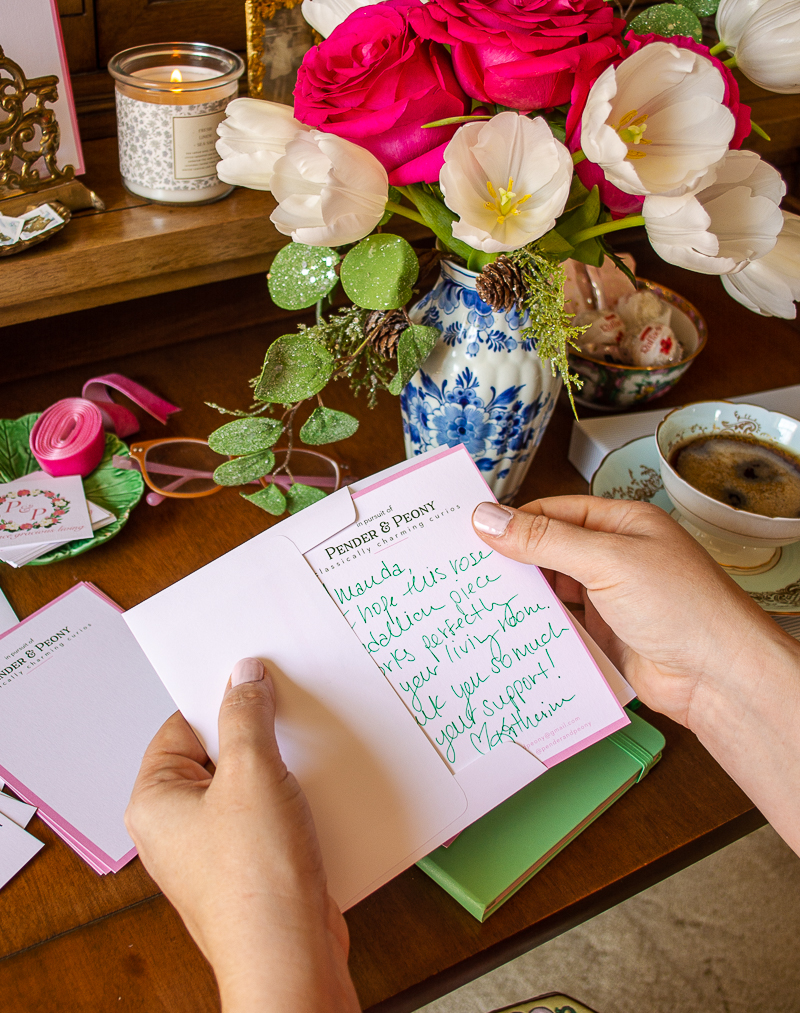 in pursuit of
PENDER & PEONY
classically charming curios
manda,
hope this rose
dallion piece
rks perfectly
your living room.
nk you so much
your support!
eony@gmail.com
@penderandpeony
in pursuit of
ENDER & PEONY
classically charming curios
P&P